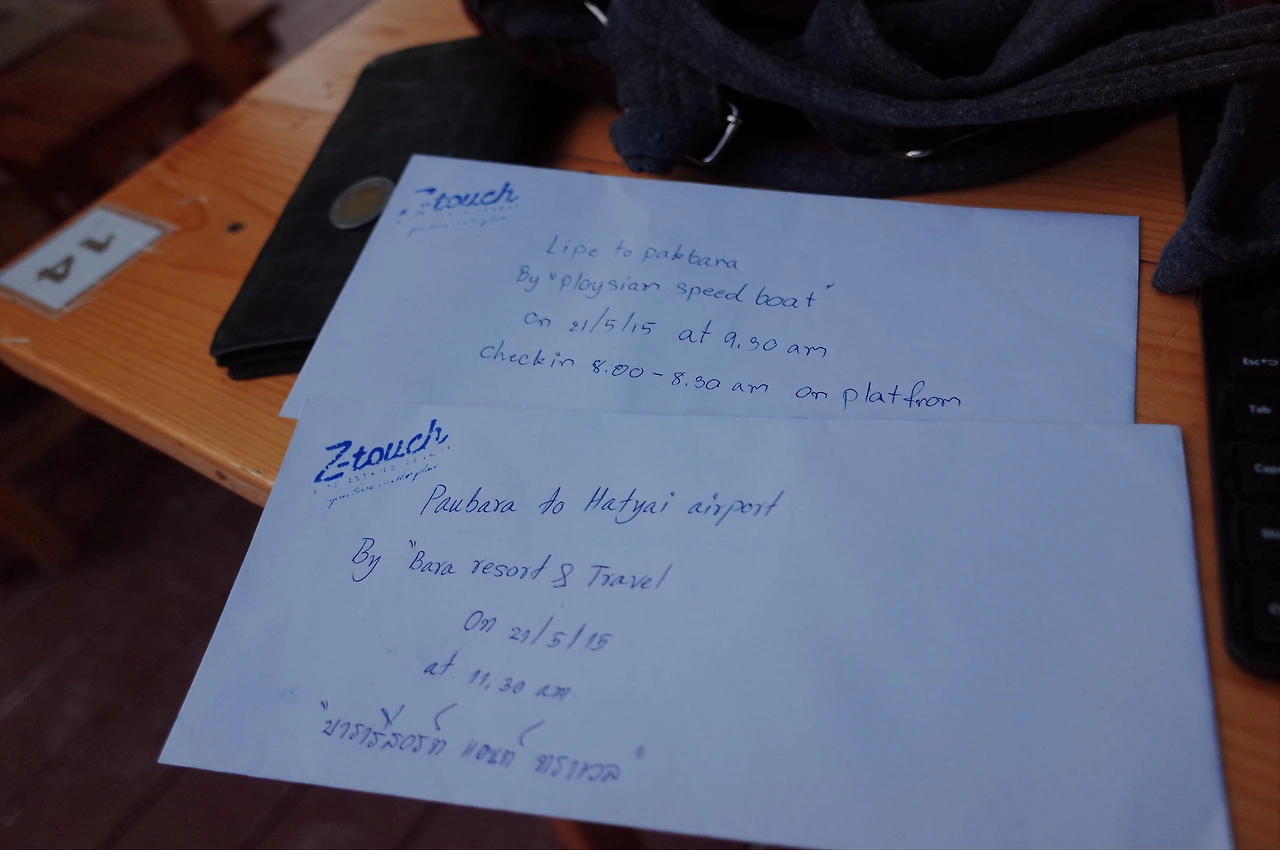 Z-touch
Lipe to pakbara
By "ploysiam speed boat"
On 21/5/15 at 9.30 am
checkin 8.00 - 8.30 am on platfrom
Z-touch
Pakbara to Hatyai airport
By "Bara resort & Travel
On 21/5/15
at 11.30 am
"บารารีสอร์ท แอนท์ ทราเวล"
14
Esc
Tab
Caps